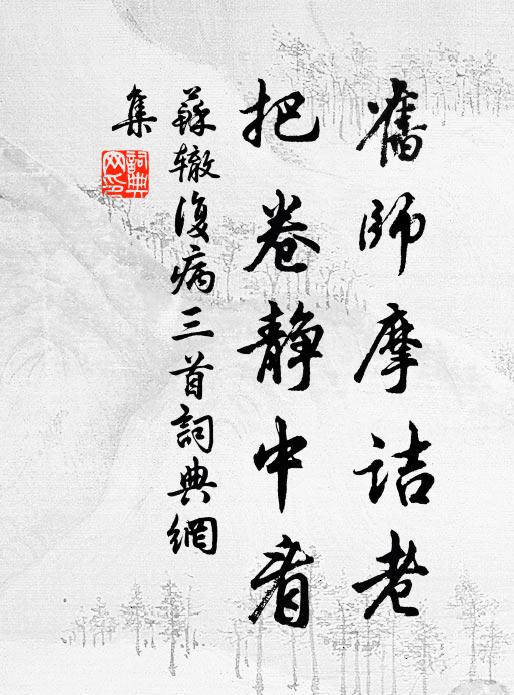 舊師摩詰老
把卷静中看
蘇辙復病三首詞典網
集
詞典網印